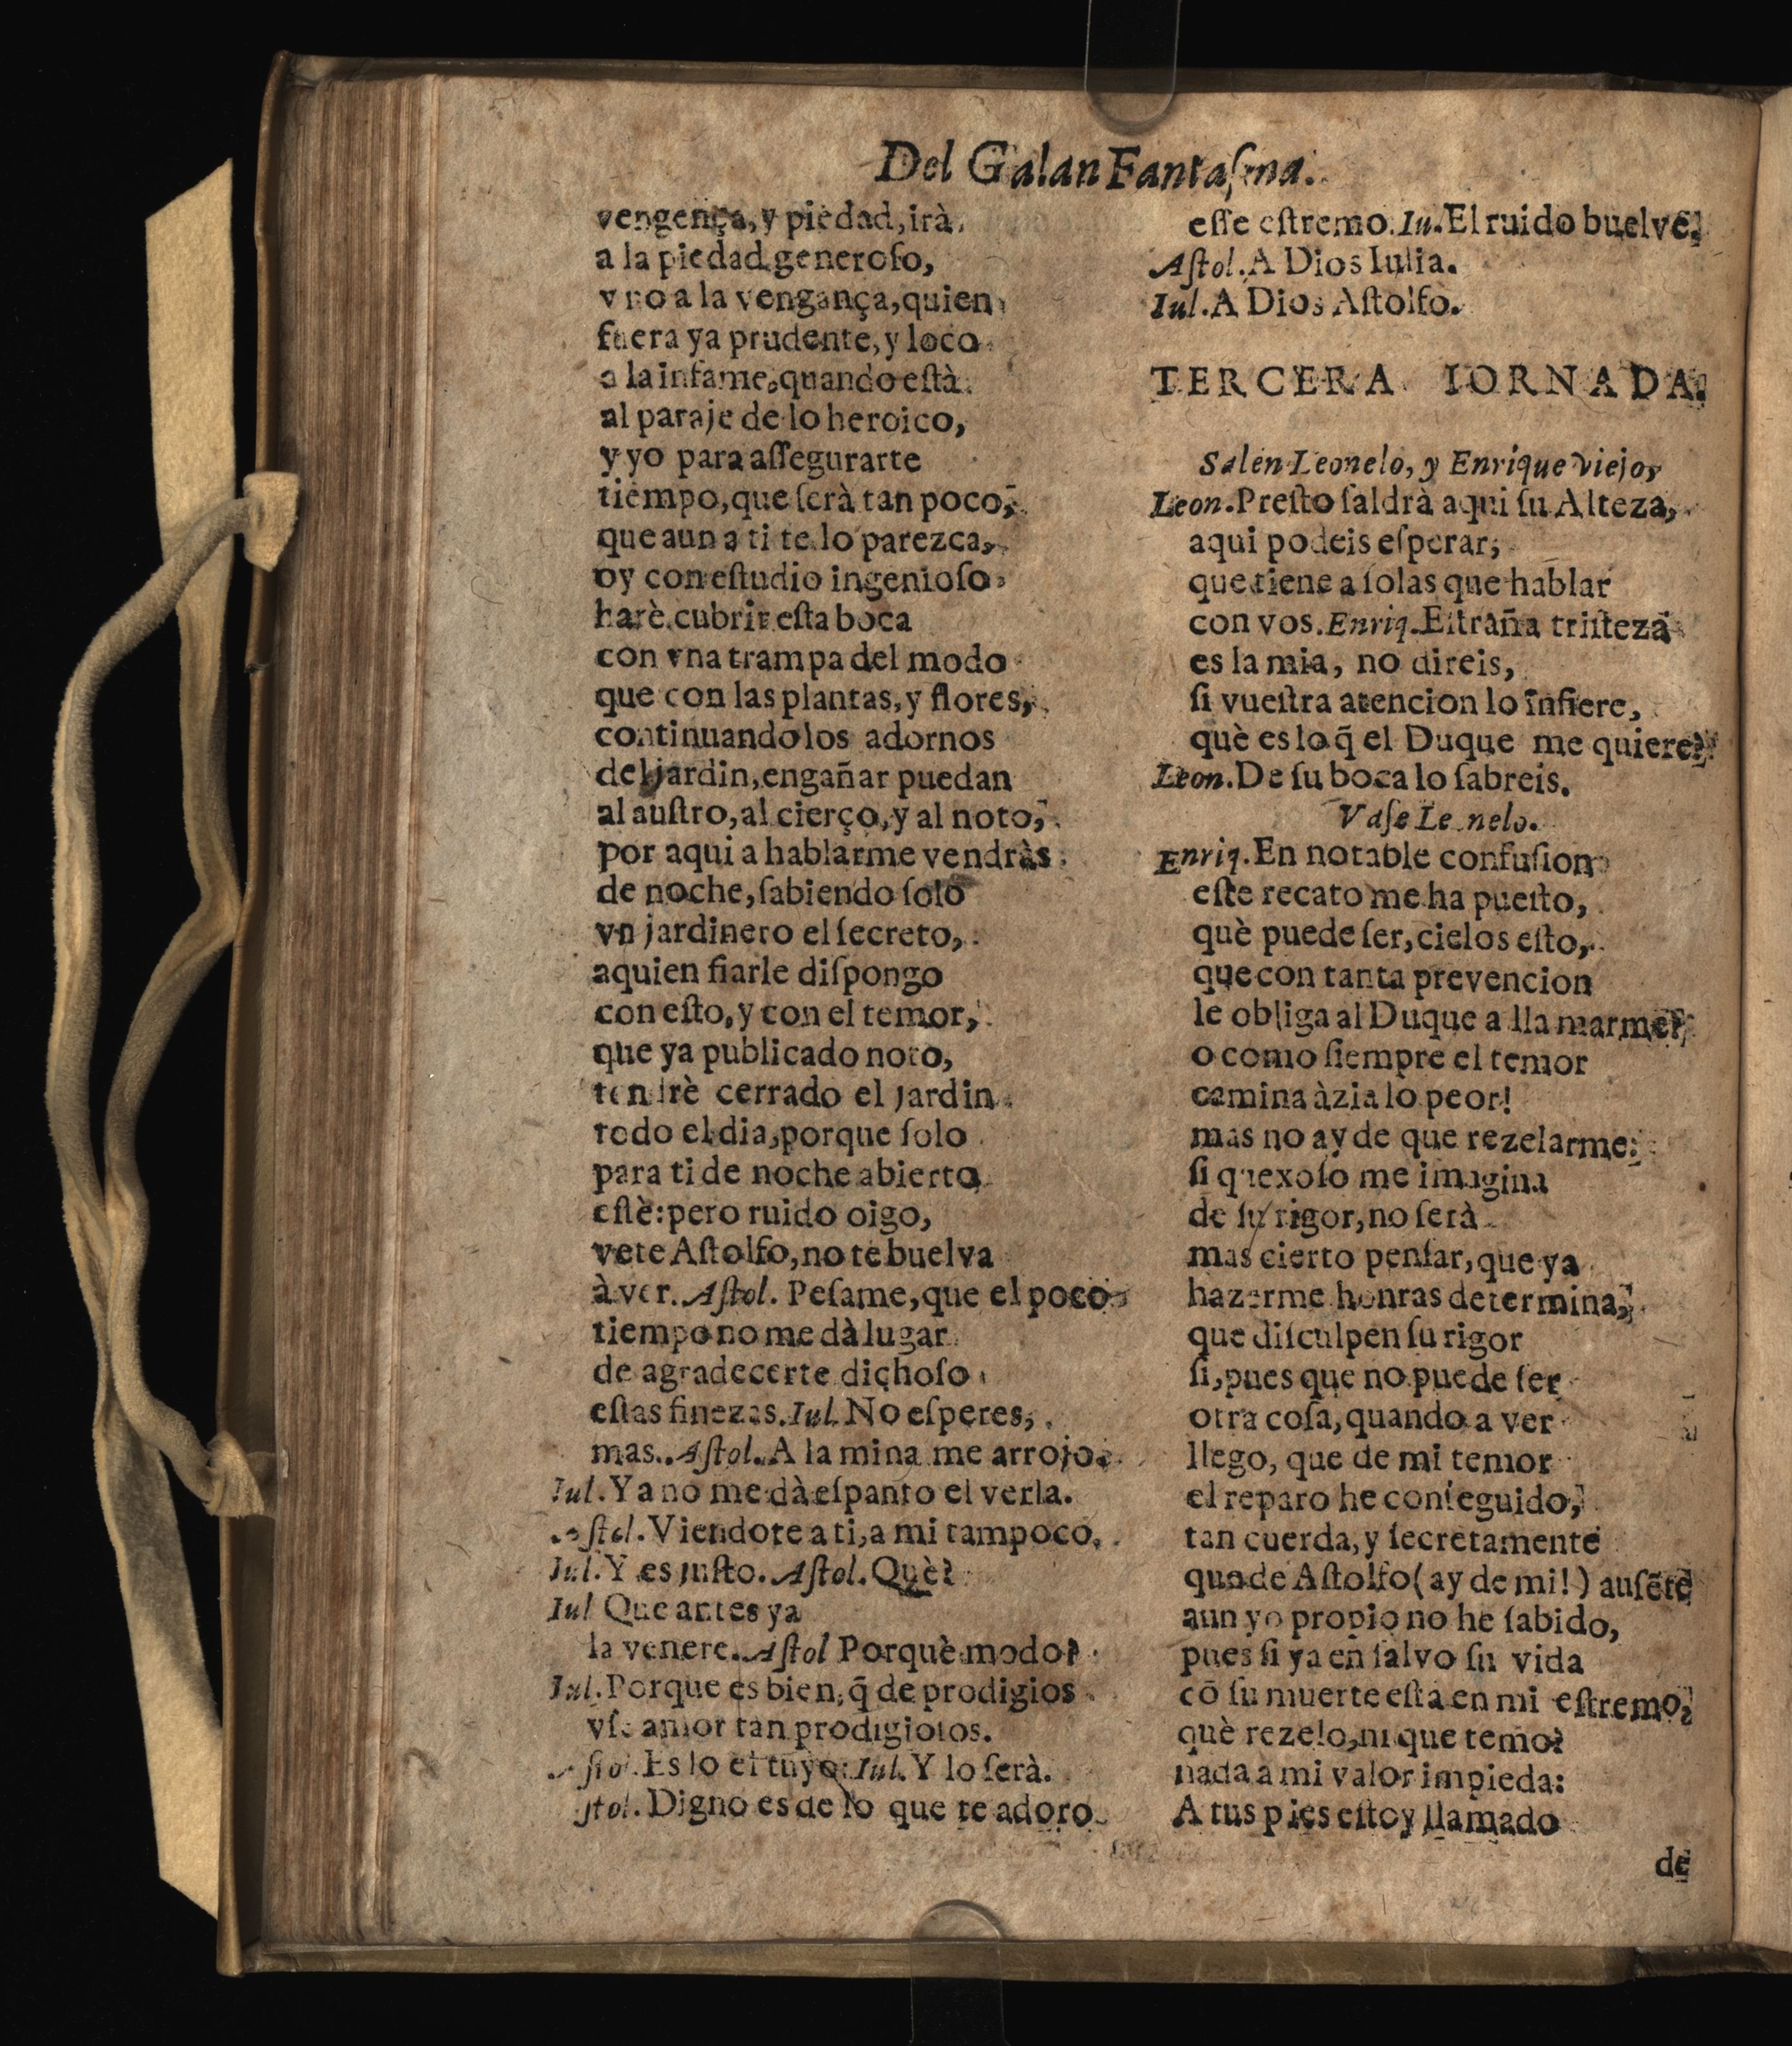 Del Galan Fantaſma.
vengença, y piedad, irà
a la piedad generoſo,
vno a la vengança, quien
fuera ya prudente, y loco
a la infame, quando eſtà
al paraje de lo heroico,
y yo para aſſegurarte
tiempo, que ſerà tan poco,
que aun a ti te lo parezca,
oy con eſtudio ingenioſo
harè cubrir eſta boca
con vna trampa del modo
que con las plantas, y flores,
continuando los adornos
del jardin, engañar puedan
al auſtro, al cierço, y al noto,
por aqui a hablarme vendràs
de noche, ſabiendo ſolo
vn jardinero el ſecreto,
aquien fiarle diſpongo
con eſto, y con el temor,
que ya publicado noto,
tendrè cerrado el jardin
todo el dia, porque ſolo
para ti de noche abierto
eſtè: pero ruido oigo,
vete Aſtolfo, no te buelva
à ver. Aſtol. Peſame, que el poco
tiempo no me dà lugar
de agradecerte dichoſo
eſtas finezas. Iul. No eſperes,
mas.. Aſtol. A la mina me arrojo.
Iul. Ya no me dà eſpanto el verla.
Aſtol. Viendote a ti, a mi tampoco.
Iul. Y es juſto. Aſtol. Què?
Iul Que antes ya
la venere. Aſtol Porquè modo?
Iul. Porque es bien, q̃ de prodigios
vſe amor tan prodigioſos.
Aſtol. Es lo el tuyo: Iul. Y lo ſerà.
Aſtol. Digno es de lo que te adoro
eſſe eſtremo. Iu. El ruido buelve.
Aſtol. A Dios Iulia.
Iul. A Dios Aſtolfo.
TERCERA IORNADA.
Salen Leonelo, y Enrique viejo,
Leon. Preſto ſaldrà aqui ſu Alteza,
aqui podeis eſperar,
que tiene a ſolas que hablar
con vos. Enriq. Eſtraña triſteza
es la mia, no direis,
ſi vueſtra atencion lo infiere,
què es lo q̃ el Duque me quiere?
Leon. De ſu boca lo ſabreis.
Vaſe Leonelo.
Enriq. En notable confuſion
eſte recato me ha pueſto,
què puede ſer, cielos eſto,
que con tanta prevencion
le obliga al Duque a llamarme?
o como ſiempre el temor
camina àzia lo peor!
mas no ay de que rezelarme:
ſi quexoſo me imagina
de ſu rigor, no ſerà
mas cierto penſar, que ya
hazerme honras determina,
que diſculpen ſu rigor
ſi, pues que no puede ſer
otra coſa, quando a ver
llego, que de mi temor
el reparo he conſeguido,
tan cuerda, y ſecretamente
quade Aſtolfo (ay de mi!) auſẽte
aun yo propio no he ſabido,
pues ſi ya en ſalvo ſu vida
cõ ſu muerte eſta en mi eſtremo,
què rezelo, ni que temo?
nada a mi valor impieda:
A tus pies eſtoy llamado
de